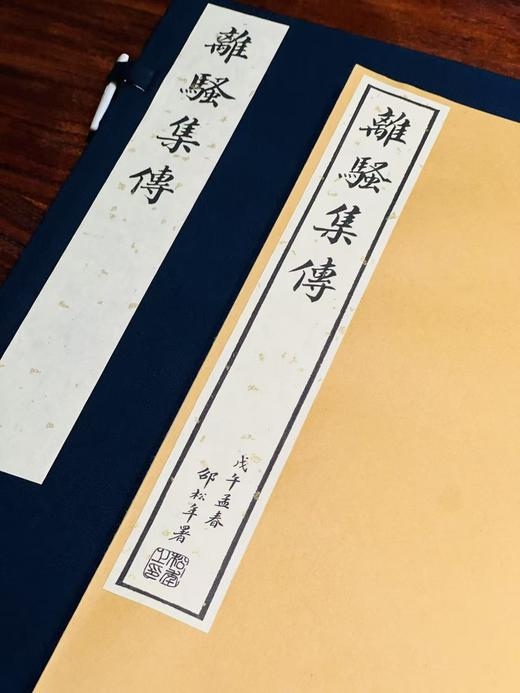 離騷集傳
離騷集傳
戊午孟春
邵松年署